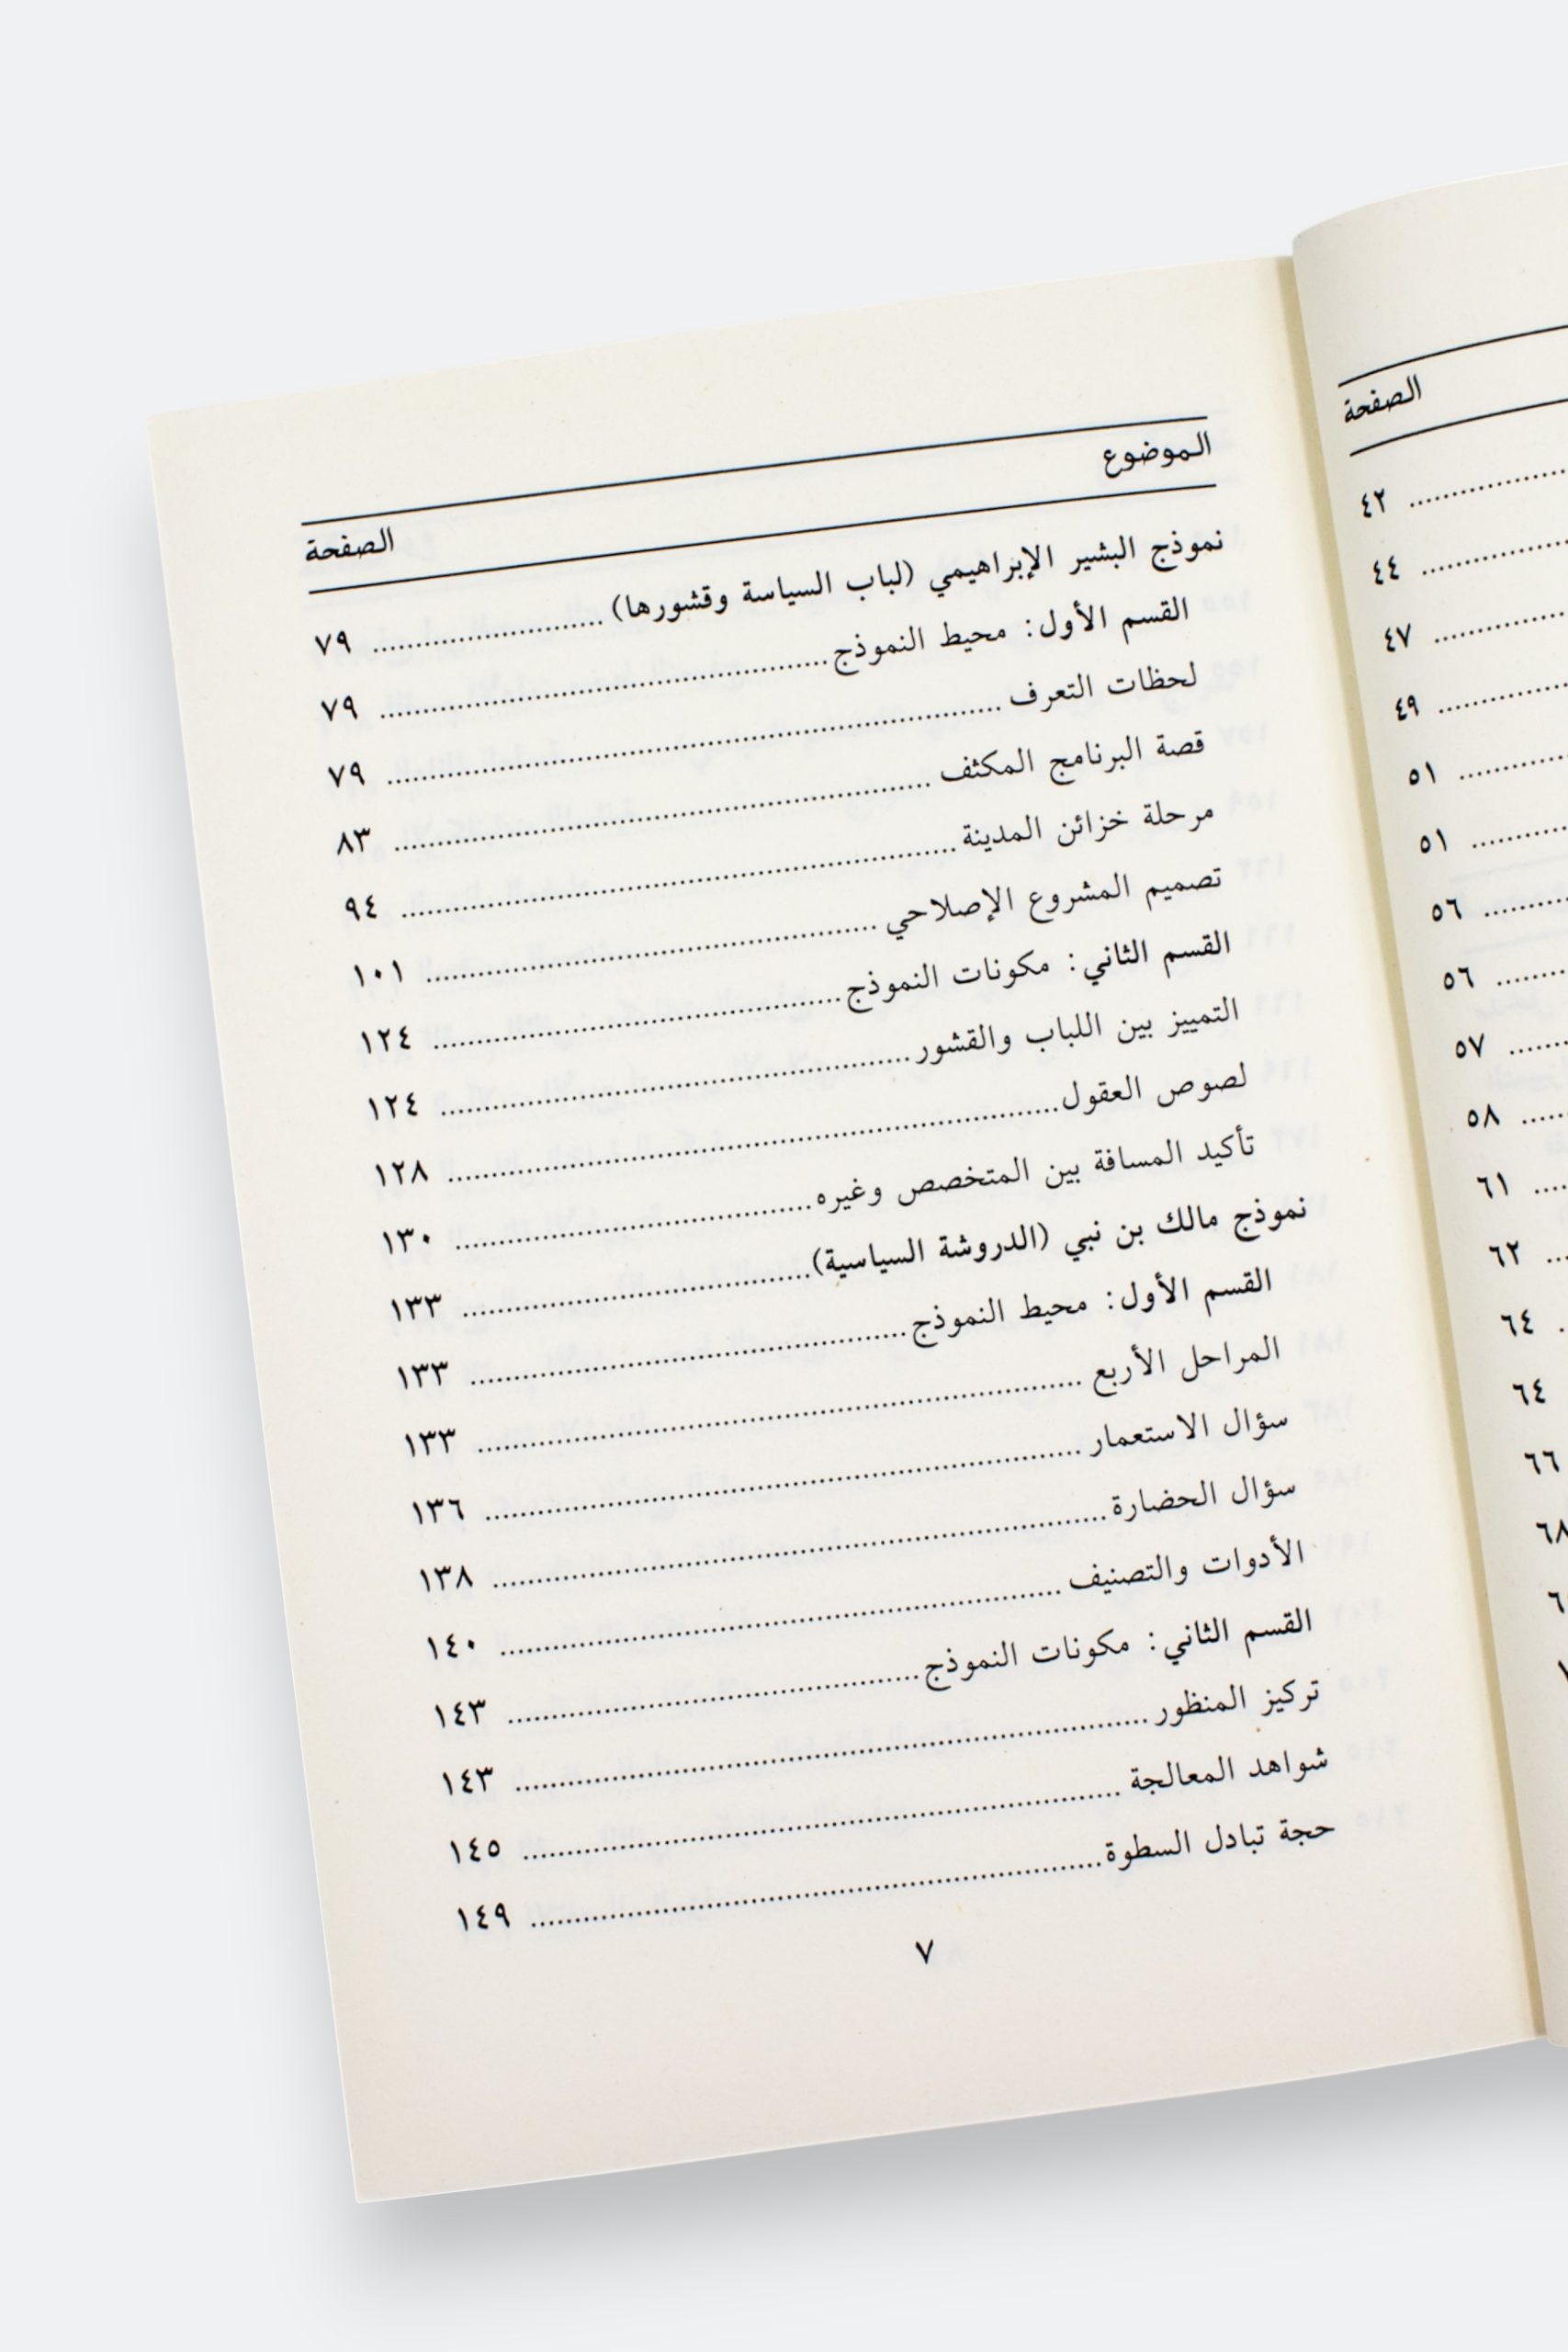 الصفحة
٤٢
٤٤
٤٧
٤٩
٥١
٥١
٥٦
٥٦
٥٧
٥٨
٦١
٦٢
٦٤
٦٤
٦٦
٦٨
الموضوع الصفحة
نموذج البشير الإبراهيمي (لباب السياسة وقشورها) ........................ ٧٩
القسم الأول: محيط النموذج ........................ ٧٩
لحظات التعرف ........................ ٧٩
قصة البرنامج المكثف ........................ ٨٣
مرحلة خزائن المدينة ........................ ٩٤
تصميم المشروع الإصلاحي ........................ ١٠١
القسم الثاني: مكونات النموذج ........................ ١٢٤
التمييز بين اللباب والقشور ........................ ١٢٤
لصوص العقول ........................ ١٢٨
تأكيد المسافة بين المتخصص وغيره ........................ ١٣٠
نموذج مالك بن نبي (الدروشة السياسية) ........................ ١٣٣
القسم الأول: محيط النموذج ........................ ١٣٣
المراحل الأربع ........................ ١٣٣
سؤال الاستعمار ........................ ١٣٦
سؤال الحضارة ........................ ١٣٨
الأدوات والتصنيف ........................ ١٤٠
القسم الثاني: مكونات النموذج ........................ ١٤٣
تركيز المنظور ........................ ١٤٣
شواهد المعالجة ........................ ١٤٥
حجة تبادل السطوة ........................ ١٤٩
٧